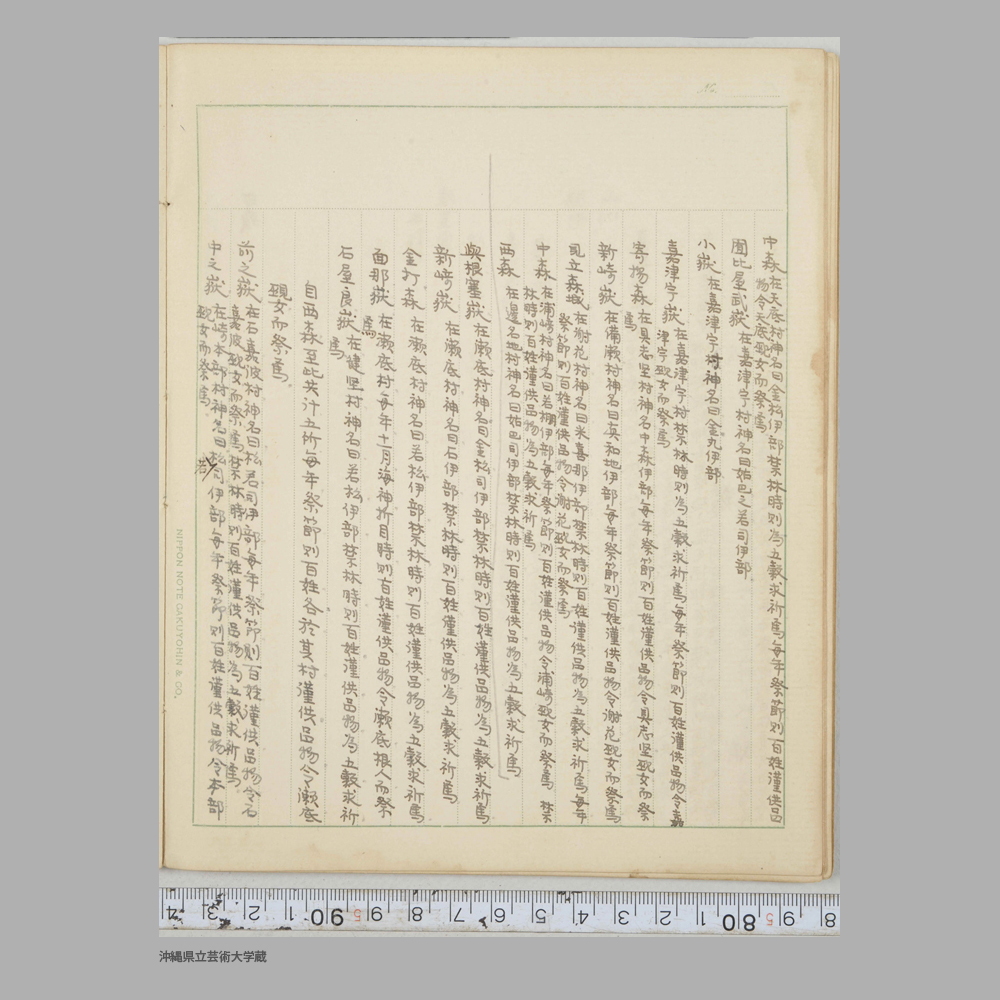 中森 在天底村神名曰金松伊部禁林時則為五穀求祈焉毎年祭節則百姓謹供品
物令天底覡女而祭焉
在嘉津宇村神名曰姑巴之若司伊部
小嶽 在嘉津宇村神名曰金丸伊部
嘉津宇嶽 在嘉津宇村禁林時則為五穀求祈焉毎年祭節則百姓謹供品物令嘉
津宇覡女而祭焉
寄揚森 在具志堅村神名中森伊部毎年祭節則百姓謹供品物令具志堅覡女而祭
焉
新崎嶽 在備瀬村神名曰真和地伊部毎年祭節則百姓謹供品物令謝花覡女而祭焉
在謝花村神名曰米嘉那伊部禁林時則百姓謹供品物為五穀求祈焉毎年
祭節則百姓謹供品物令謝花覡女而祭焉
中森 在浦崎村神名曰若棚伊部毎年祭節則百姓謹供品物令浦崎覡女而祭焉 禁
林時則百姓謹供品物為五穀求祈焉
西森 在邊名地村神名曰姑巴司伊部禁林時則百姓謹供品物為五穀求祈焉
與根塞嶽 在瀬底村神名曰金松司伊部禁林時則百姓謹供品物為五穀求祈焉
新崎嶽 在瀬底村神名曰石伊部禁林時則百姓謹供品物為五穀求祈焉
金打森 在瀬底村神名曰若松伊部禁林時則百姓謹供品物為五穀求祈焉
面那嶽 在瀬底村毎年十二月海神折目時則百姓謹供品物令瀬底根人而祭
焉
石屋良嶽 在健堅村神名曰若松伊部禁林時則百姓謹供品物為五穀求祈
焉
自西森至此共計五所毎年祭節則百姓各於其村謹供品物令瀬底
覡女而祭焉
前之嶽 在石嘉波村神名曰松若司伊部毎年祭節則百姓謹供品物令石
嘉波覡女而祭焉禁林時則百姓謹供品物為五穀求祈焉
中之嶽 在崎本部村神名曰松司伊部毎年祭節則百姓謹供品物令本部
覡女而祭焉
若
NIPPON NOTE GAKUYOHIN & CO.
4 3 2 1 90 9 8 7 6 5 4 3 2 1 80 9 8
沖縄県立芸術大学蔵